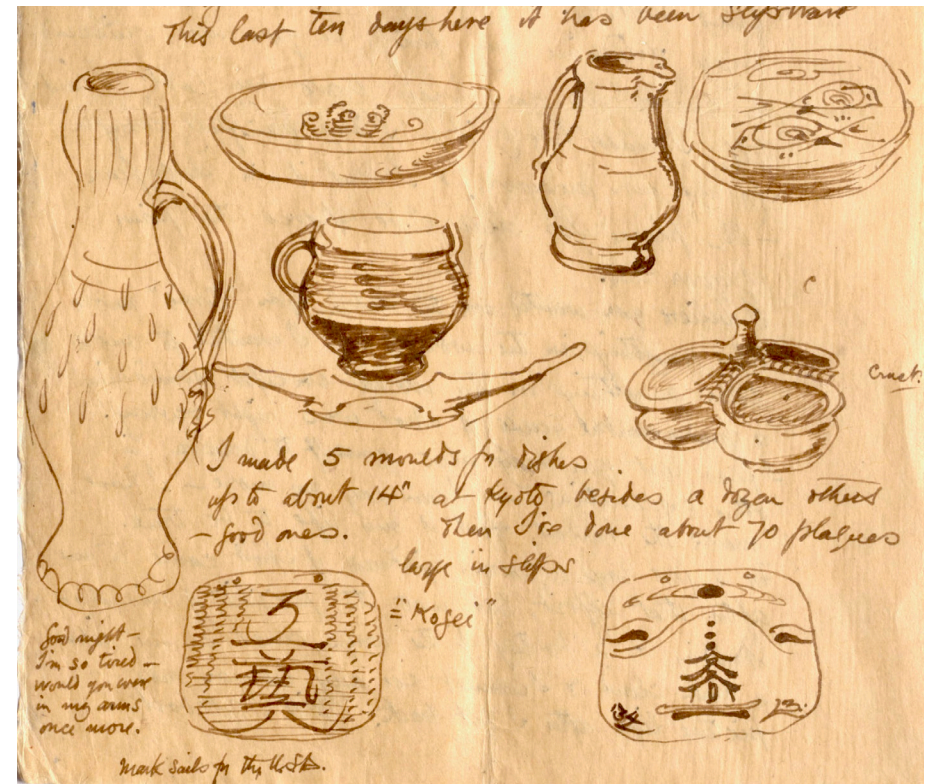 This last ten days here it has been slipware
Cruet.
I made 5 moulds for dishes
up to about 14" at Kyoto besides a dozen others
– good ones. Then I've done about 70 plaques
large in slip
= "Kogei"
工藝
34 12.
Good night –
I'm so tired –
would you were
in my arms
once more.
Mark sails for the U.S.A.